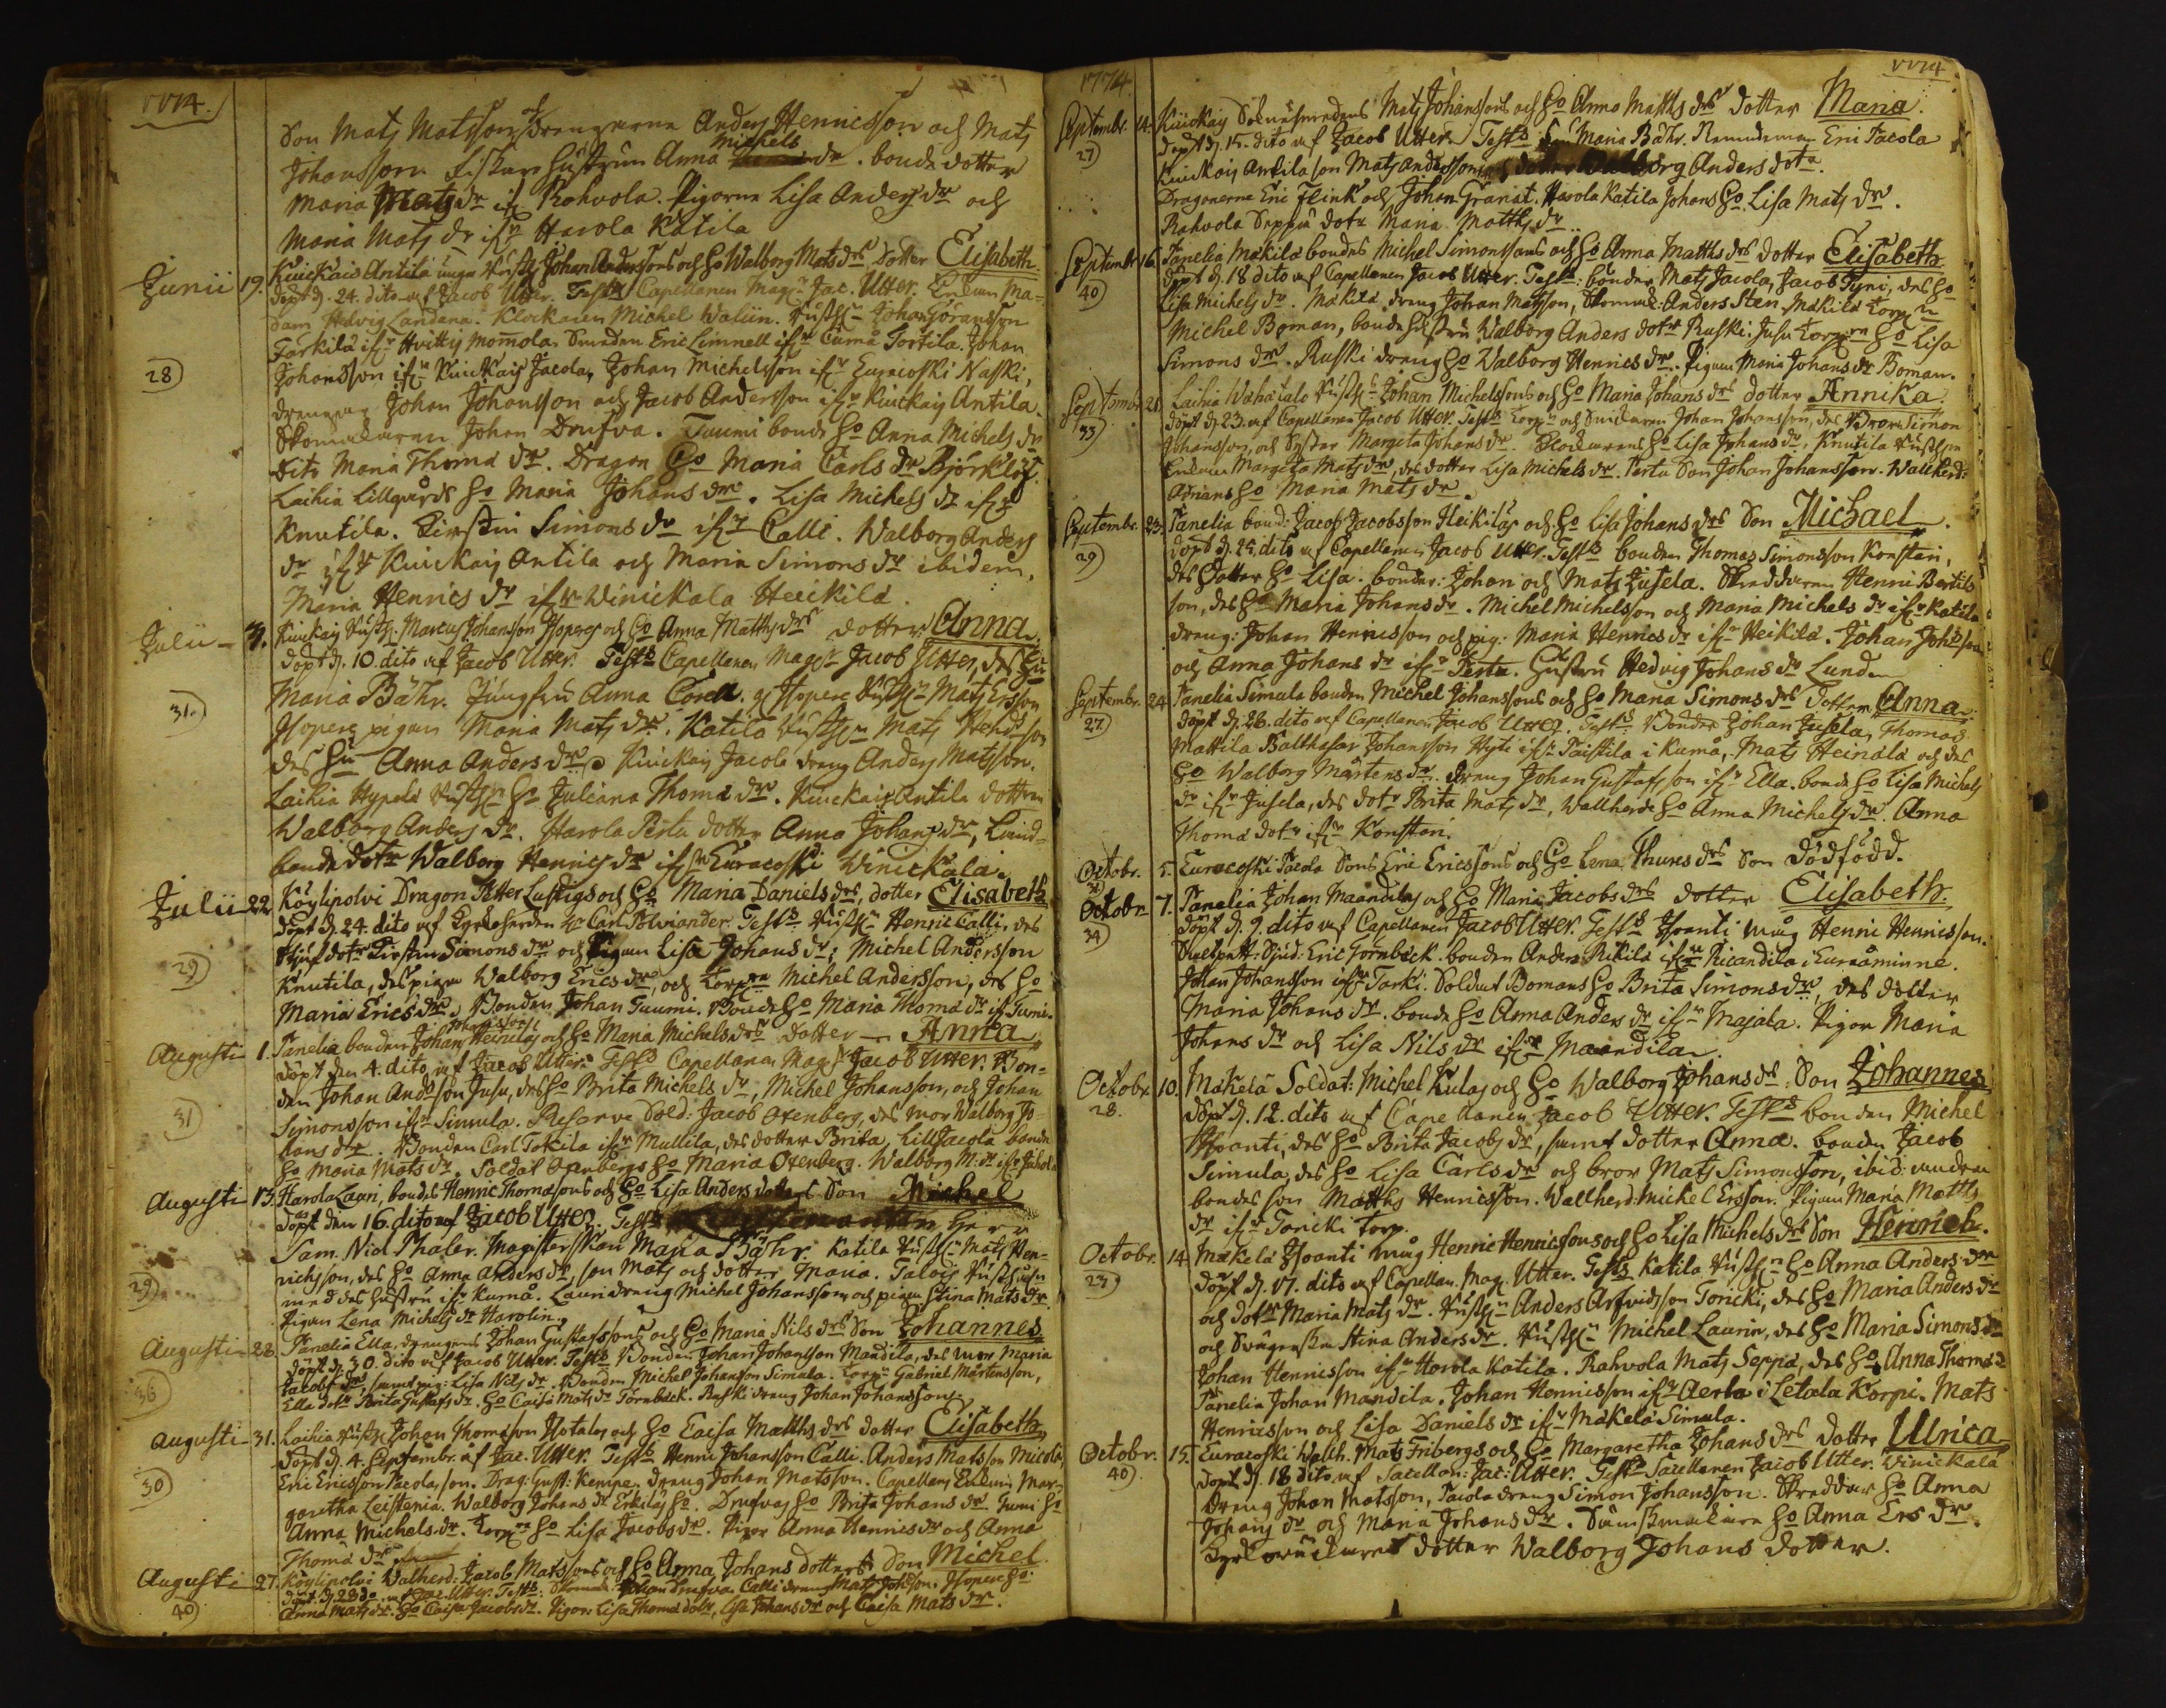 1774.
Son Mats Matsson, drengarne Anders Henricsson och Mats
Johansson. fiskars hustrun Anna Michels dr. bonde dotter
Maria Mats dr ifr Rohvola. Pigorne Lisa Anders dr och
Maria Mats dr ifr Harola Katila
Junii 19. Kiuckais Antila unge Rusth Johan Anderssons och Ho Walborg Mats drs dotter Elisabeth.
döpt d. 24. dito af Jacob Utter. Tests Capellanen Magr Jac. Utter. Enkan Ma-
dam Hedvig Landena. Klockaren Michel Waliin. Rusth Johan Göransson
Tarkila ifr Hvittis Mommola. Smeden Eric Limnell ifr Cumå Tortila. Johan
28
Johansson ifr Kiuckais Jacola, Johan Michelsson ifr Euracoski Naski,
drengarne Johan Johansson och Jacob Andersson ifr Kiuckais Antila.
Skomakaren Johan Drufva. Tuumi bonde Ho Anna Michels dr
dito Maria Thomæ dr. Dragon Ho Maria Carls dr Björklöf.
Laihia Lillgårds Ho Maria Johans dr. Lisa Michels dr ifr
Knutila. Kirstin Simons dr ifr Calli. Walborg Anders
dr ifr Kiuckais Antila och Maria Simons dr ibidem,
Maria Henrics dr ifr Winickala Heickilä.
Julii 3. Kiuckais Rusth. Marcus Johansson Isoperes och Ho Anna Matths drs dotter Anna.
döpt d. 10. dito af Jacob Utter. Tests Capellanen Magr Jacob Utter, des Hu
Maria Bähr. Jungfru Anna Corell. Isopere Rusth Mats Ersson
31.
Isopere pigan Maria Mats dr. Katila Rusth Mats Hendson
des Hu Anna Anders dr. Kiuckais Jacola dreng Anders Matsson.
Laihia Hypelä Rusth Ho Juliana Thomæ dr. Kiuckais Antila dottren
Walborg Anders dr. Harola Perta dotter Anna Johans dr, Lund-
bonde dotr Walborg Henrics dr ifr Euracoski Winickala.
Julii 22. Köylipolvi Dragon Petter Lustigs och Ho Maria Daniels drs, dotter Elisabeth
döpt d. 24. dito af Kyrkoherden Carl Polviander. Tests Rusth Henric Calli, des
Styf dotr Kirstin Simons dr och Pigan Lisa Johans dr; Michel Andersson
29
Knutila, des pigan Walborg Erics dr, och Torpn Michel Andersson, des Ho
Maria Erics dr. Bonden Johan Tuumi. Bonde Ho Maria Thomæ dr ifr Tumi.
Augusti 1. Panelia bonden Johan Johanssons Heinilas och Ho Maria Michels drs Dotter Anna
döpt den 4. dito af Jacob Utter. Tests Capellanen Magr Jacob Utter. Bon-
den Johan Andson Jusu, des Ho Brita Michels dr, Michel Johansson, och Johan
31
Simonsson ifr Simula. Reserve Sold: Jacob Oxenberg, des mor Walborg Jo-
hans dr. Bonden Carl Tokila ifr Mullila, des dotter Brita, Lill Jacola bonde
Ho Maria Mats dr. Soldat Oxenbergs Ho Maria Oxenberg. Walborg M: dr ifr
Augusti 13. Harola Lauri, bondes Henric Thomæssons och Ho Lisa Anders dotters Son Michel
döpt den 16. dito af Jacob Utter. Tests Herr
Sam. Nic Thaler. Magisterskan Maria Bähr. Katila Rusth Mats Hen-
richsson, des Ho Anna Anders dr, son Mats och dotter Maria. Talois
29
med des hustru ifr Kumå. Lauri dreng Michel Johansson och pigan Stina Mats dr
Pigan Lena Michels dr Harolin.
Augusti 28. Panelia Ella, drengens Johan Gustafssons och Ho Maria Nils drs Son Johannes
döpt d. 30. dito af Jacob Utter. Tests Bonden Johan Johansson Mandila, des mor Maria
Jacobs dr, samt pig: Lisa Nils dr. Bonden Michel Johansson Simula. Torpn Gabriel Mårtensson,
36
Ella dotr Brita Gustafs dr. Ho Caisa Mats dr Törnbäck. Ruski dreng Johan Johansson.
Augusti 31. Laihia Rusth Johan Thomæson Hotalas och Ho Caisa Matths drs dotter Elisabeth
döpt d. 4. Septembr. af Jac. Utter. Tests Henric Johansson Calli. Anders Matsson Micola,
Eric Ericsson Pacola, son. Drag: Gust: Kempe. dreng Johan Matsson. Capellans Enkan Mar-
30
garetha Leistenia. Walborg Johans dr Erkilas Ho. Drufvas Ho Brita Johans dr. Tumi Ho
Anna Michels dr. Torpn Ho Lisa Jacobs dr. Pigor Anna Henrics dr och Anna
Thomæ dr
Augusti 27. Köylipolvi Walherd: Jacob Matssons och Ho Anna Johans dotters Son Michel.
döpt d. 28 do af Jac. Utter. Tests: Skomak: Johan Drufva. Calli dreng Mats Johsson. Isopere Ho:
40
Anna Mats dr. Ho Caisa Jacobs dr. Pigor: Lisa Thomæ dotr, Lisa Johans dr och Caisa Mats dr.
1774.
1774
Septembr. 14. Kiuckais Sockensmedens Mats Johanssons och Ho Anna Matths drs dotter Maria.
döpt d. 15. dito af Jacob Utter. Tests Fru Maria Bähr. Nemndeman Eric Pacola
27
Kiuckais Antila son Mats Andersson och dotter Walborg Anders dotr.
Dragonerne Eric Flink och Johan Granat. Harola Katila Johans Ho. Lisa Mats dr.
Rahvola Seppä dotr Maria Matths dr.
Septembr 16. Panelia Mäkilä bondes Michel Simonssons och Ho Anna Matths drs dotter Elisabeth
döpt d. 18 dito af Capellanen Jacob Utter. Tests: bonden Mats Jacola, Jacob Tyni, des Ho
40
Lisa Michels dr. Mäkilä dreng Johan Matsson, Skomak: Anders Sten. Mäkilä Torpn
Michel Boman, bonde hustru Walborg Anders dotr Ruski. Jusu Torpn Ho Lisa
Simons dr. Ruski dreng Ho Walborg Henrics dr. Pigan Maria Johans dr Boman.
Septembr 21. Laihia Wähätalo Rusth Johan Michelssons och Ho Maria Johans drs dotter Annika.
döpt d. 23. af Capellanen Jacob Utter. Tests Torpn och Snickaren Johan Johansson, des Bror Simon
33
Johansson, och Syster Margeta Johans dr. Klockarens Ho Lisa Johans dr. Knutila Rusth
Enkan Margeta Mats dr, des dotter Lisa Michels dr. Perta Son Johan Johansson. Wallherd:
Adrians Ho Maria Mats dr.
Septembr. 23. Panelia bond: Jacob Jacobsson Heikilas och Ho Lisa Johans drs Son Michael.
döpt d. 25. dito af Capellanen Jacob Utter. Tests bonden Thomas Simonsson Konstari,
29
des Dotter Ho Lisa. bonder: Johan och Mats Jusela. Skreddaren Henric Bertils
son, des Ho Maria Johans dr. Michel Michelsson och Maria Michels dr ifr Katila
dreng: Johan Henricsson och pig: Maria Henrics dr ifr Heikilä. Johan Johsson
och Anna Johans dr ifr Perta. Hustru Hedvig Johans dr Lunden
Septembr. 24. Panelia Simula bonden Michel Johanssons och Ho Maria Simons drs dotter Anna.
döpt d. 26. dito af Capellanen Jacob Utter. Tests Bonden Johan Jusela, Thomas
27
Mattila Balthasar Johansson Hyti ifr Paistila i Kumå, Mats Heinälä och des
Ho Walborg Mårtens dr. dreng Johan Gustafsson ifr Ella. bonde Ho Lisa Michels
dr ifr Jusela, des dotr Brita Mats dr, Wallherde Ho Anna Michels dr. Anna
Thomæ dotr ifr Konstari.
Octobr. 5. Euracoski Pacola Sons Eric Ericssons och Ho Lena Thures drs Son dödfödd.
Octobr. 7. Panelia Johan Maandilas och Ho Maria Jacobs drs dotter Elisabeth.
döpt d. 9. dito af Capellanen Jacob Utter. Tests Isoanti måg Henric Henricsson.
34
Eric Törnbäck. bonden Anders Rikilä ifr Ricandila i Euraåminne.
Johan Johansson ifr Turki. Soldat Bomans Ho Brita Simons dr, des dotter
Maria Johans dr. bonde Ho Anna Anders dr ifr Majala. Pigor Maria
Johans dr och Lisa Nils dr ifr Maandila.
Octobr. 10. Mäkelä Soldat: Michel Kulas och Ho Walborg Johans dr: Son Johannes
28.
döpt d. 12. dito af Capellanen Jacob Utter. Tests bonden Michel
Isoanti, des Ho Brita Jacobs dr, samt dotter Anna. bonden Jacob
Simula, des Ho Lisa Carls dr och bror Mats Simonsson, ibid: andra
bondes son Matths Henricsson. Wallherd: Michel Ersson. Pigan Maria Matths
dr ifr Toricki Torp.
Octobr. 14. Mäkelä Isoanti måg Henric Henricssons och Ho Lisa Michels drs Son Henrich.
23
döpt d. 17. dito af Capellan. Mag. Utter. Tests Katila Rusth Ho Anna Anders dr
och dotr Maria Mats dr. Rusth Anders Arfvidsson Toricki, des Ho Maria Anders dr
och Svägerskan Stina Anders dr. Rusth Michel Laurin, des Ho Maria Simons dr
Johan Henricsson ifr Harola Katila. Rahvola Mats Seppä, des Ho Anna Thomæ dr
Panelia Johan Mandila. Johan Henricsson ifr Aerla i Letala Korpi. Mats
Henricsson och Lisa Daniels dr ifr Mäkelä Simula.
Octobr. 15. Euracoski Walh. Mats Fribergs och Ho Margaretha Johans drs Dotter Ulrica
40.
döpt d. 18 dito af Sacellan: Jac: Utter. Tests Sacellanen Jacob Utter. Winickala
Dreng Johan Matsson, Pacola dreng Simon Johansson. Skreddar Ho Anna
Johans dr och Maria Johans dr. Ho Anna Ers dr.
dotter Walborg Johans dotter.